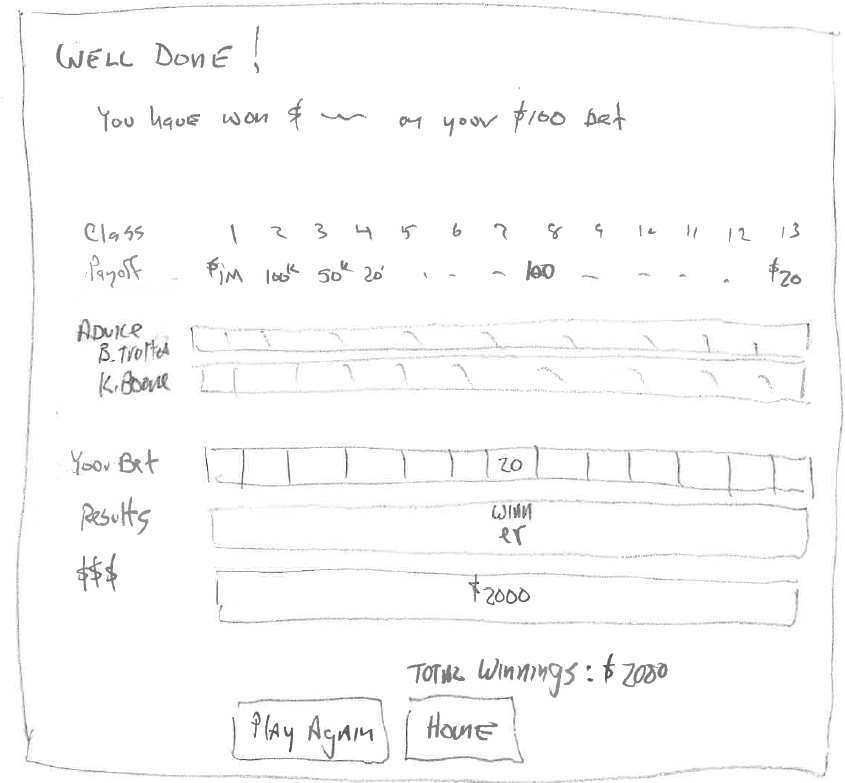 WELL DONE!
You have won $ ~~ on your $100 bet
Class 1 2 3 4 5 6 7 8 9 10 11 12 13
Payoff $1M 100K 50K 20 . - - 100 - - - . $20
ADVICE
B. Trotter
K. Boone
Your Bet 20
Results WINN
er
$$$ $2000
TOTAL Winnings: $2000
Play Again Home